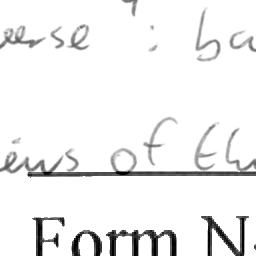 erse : ba
iews of th
Form N